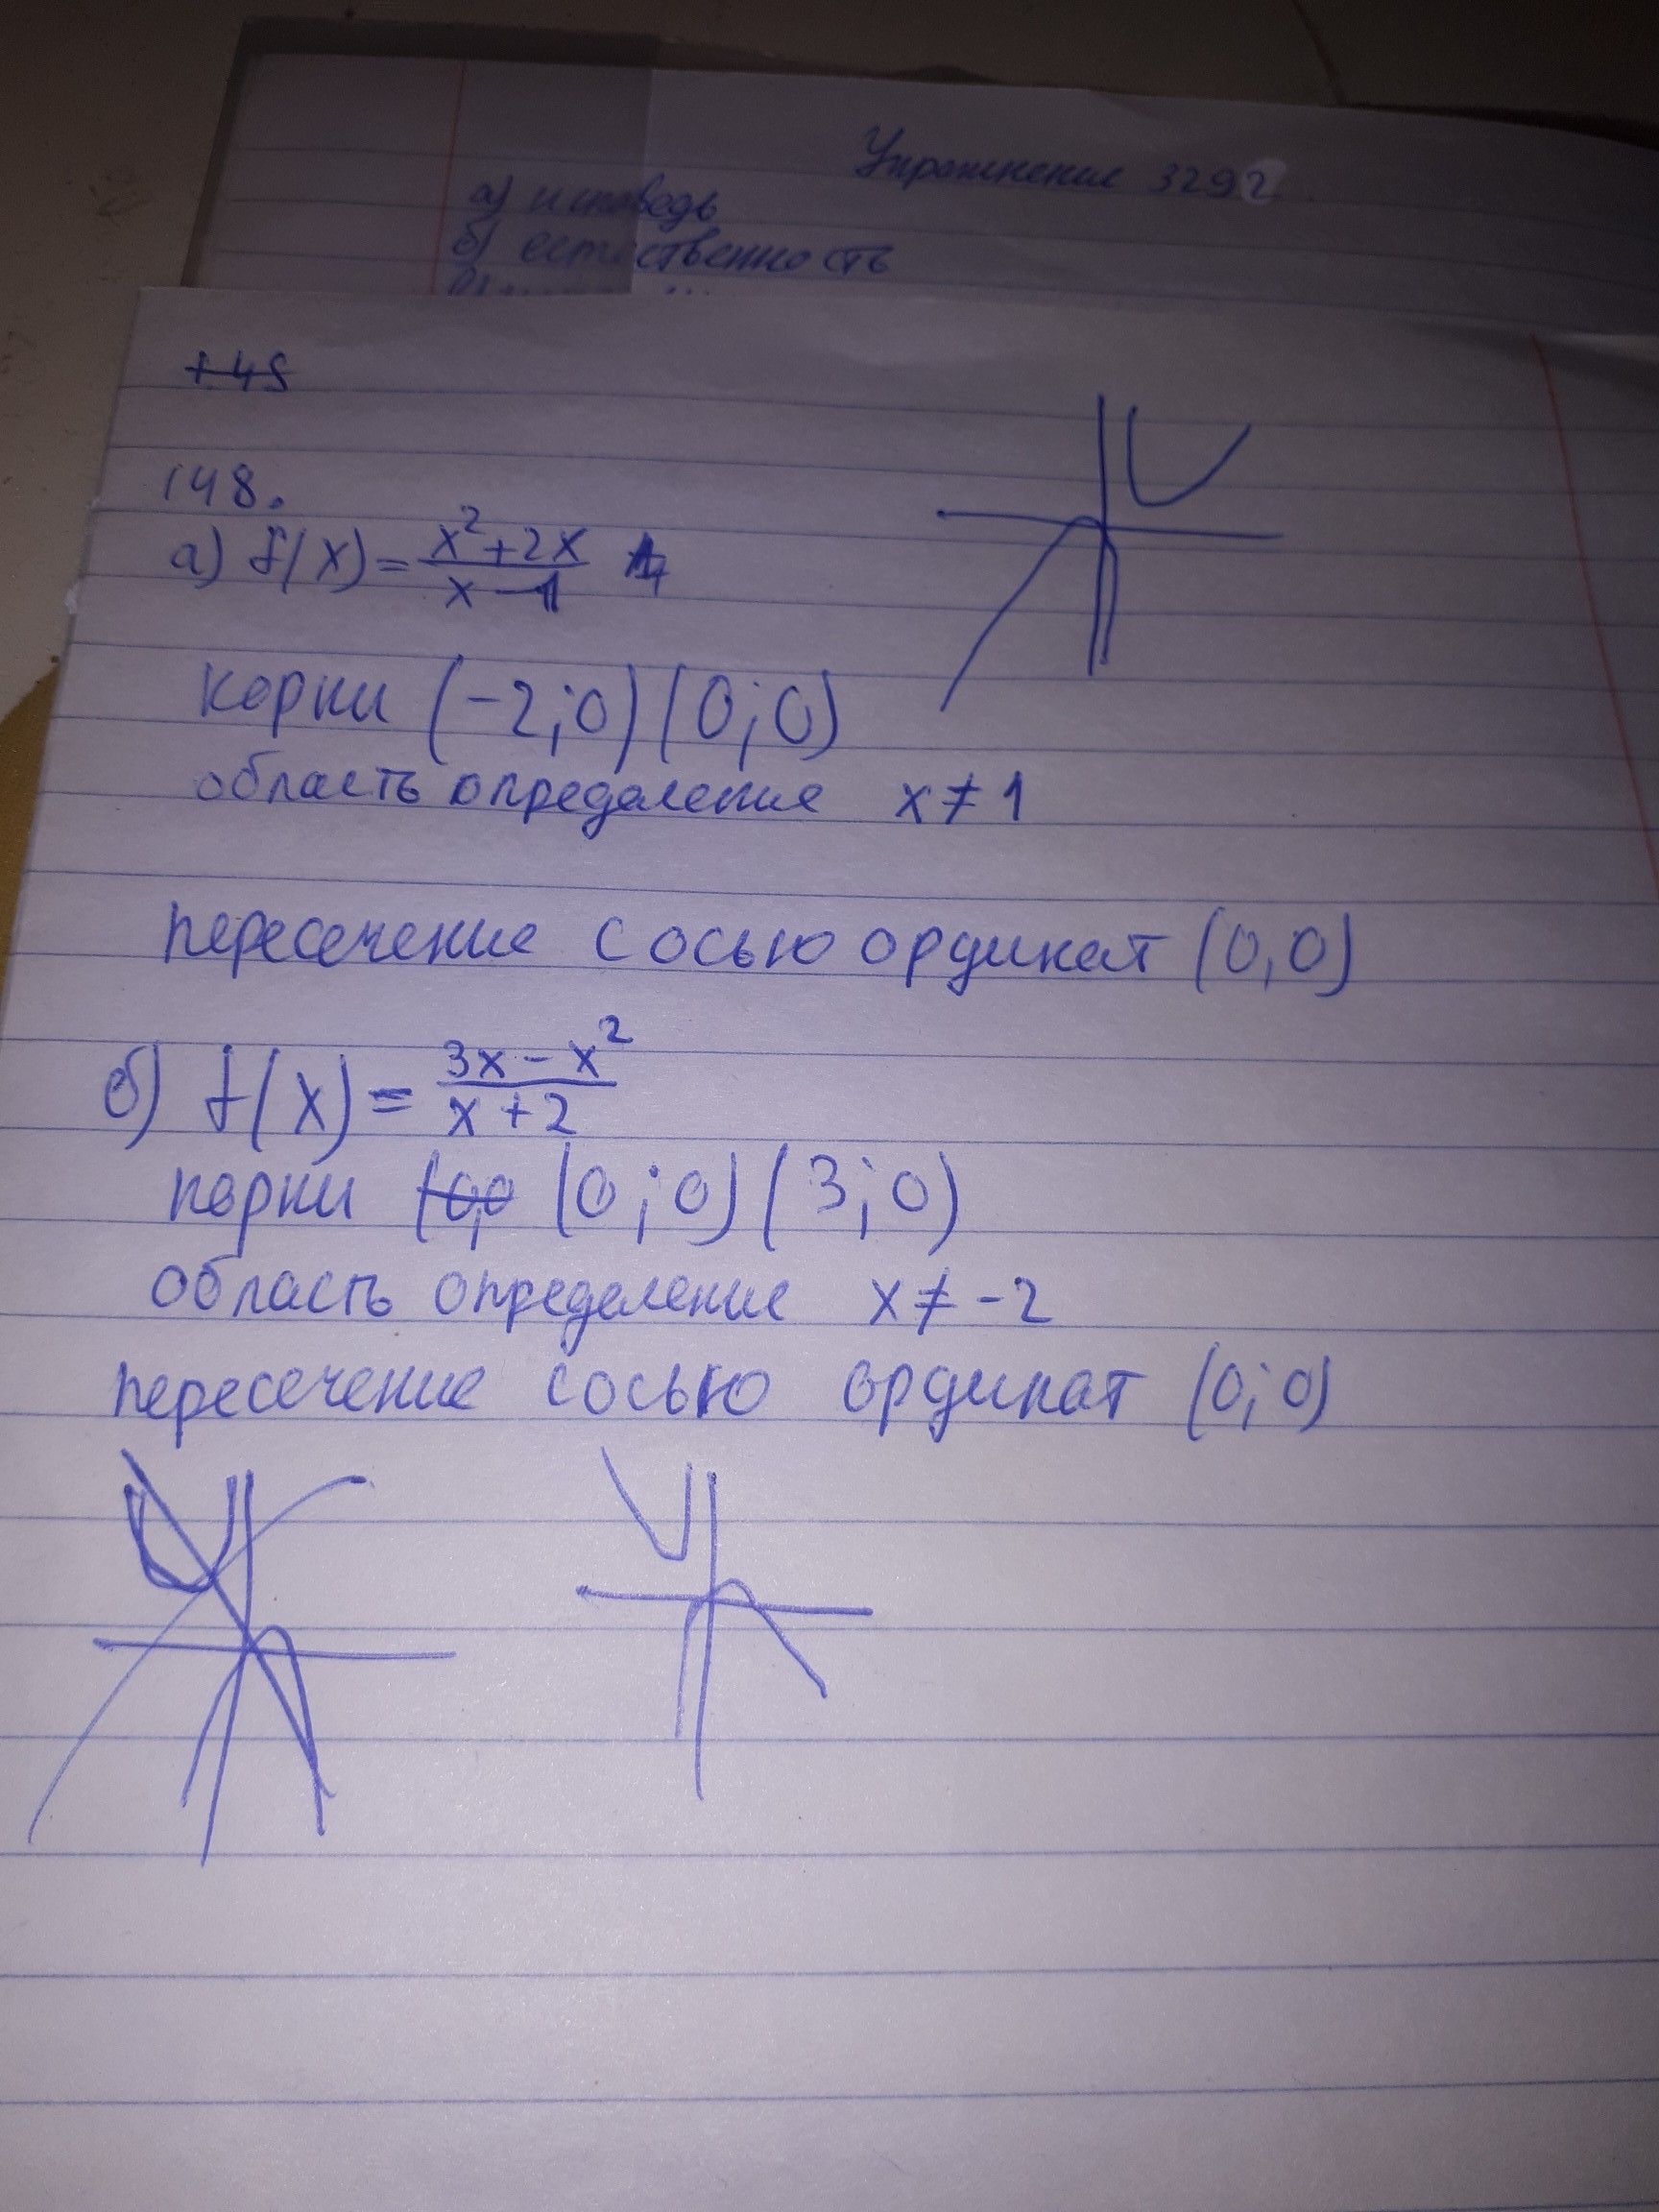 Упражнение 329г
а) исповедь
б) естественность
148.
а) f(x) = (x² + 2x)/(x - 1)
корни (-2;0) (0;0)
область определение x ≠ 1
пересечение с осью ординат (0,0)
б) f(x) = (3x - x²)/(x + 2)
корни (0;0) (3;0)
область определение x ≠ -2
пересечение с осью ординат (0;0)